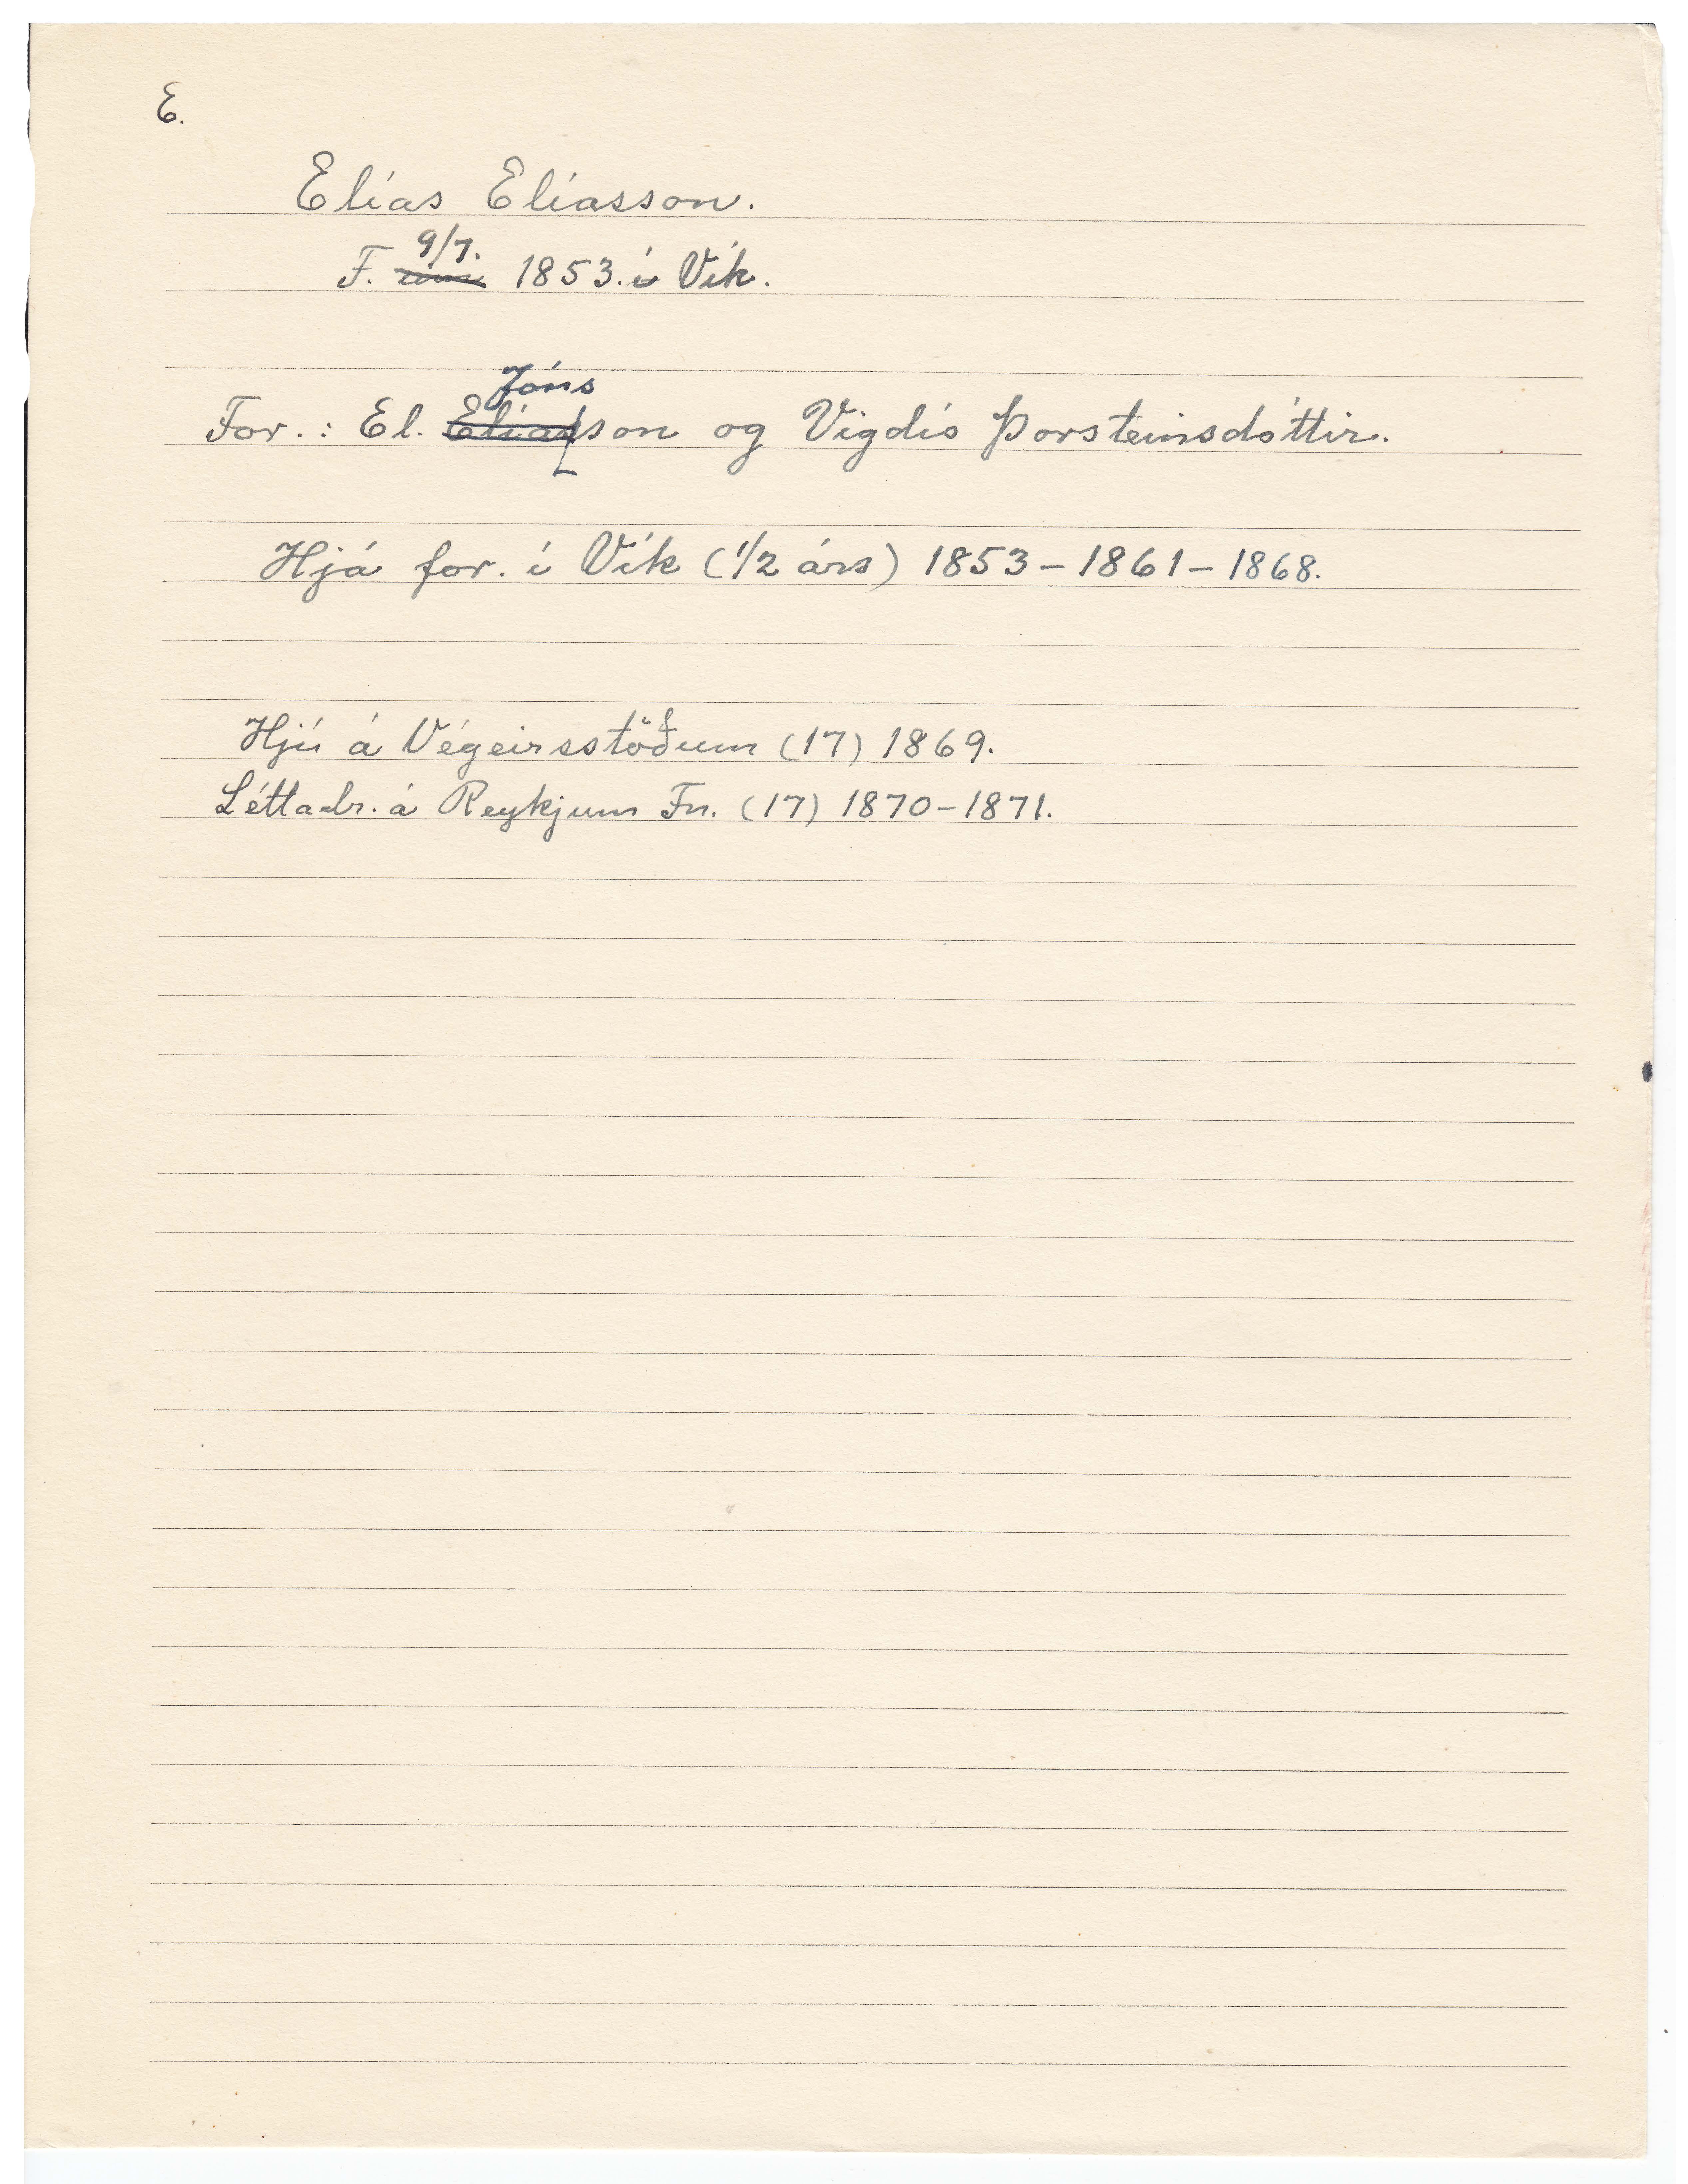 E.
Elías Elíasson.
F. 9/7. 1853. í Vík.
For.: El. Jónsson og Vigdís Þorsteinsdóttir.
Hjá for. í Vík (1/2 árs) 1853 – 1861 – 1868.
Hjú á Végeirsstöðum (17) 1869.
Léttadr. á Reykjum Fn. (17) 1870 – 1871.